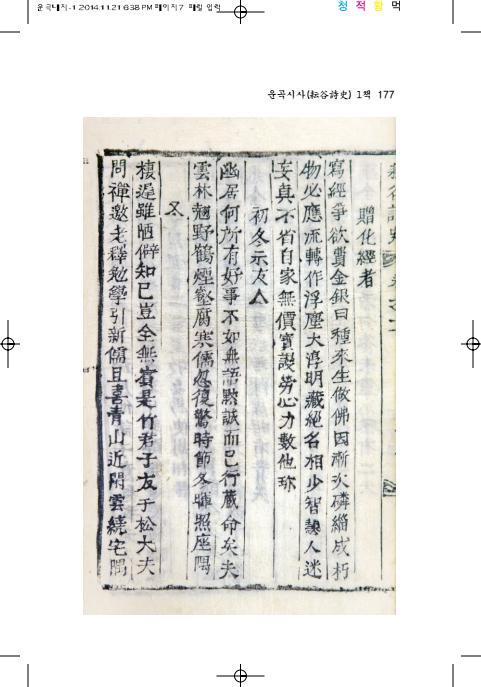 운곡대지-1 2014.11.21 6:38 PM 페이지7 매킬 업력
청 적 황 먹
운곡시사(耘谷詩史) 1책 177
贈化經者
寫經爭欲費金銀曰種來生做佛因漸次磷緇成朽
物必應流轉作浮塵大淳明藏絕名相少智 人迷
妄真不省自家無價寶謾勞心力數他珎
初冬示友人
幽居何所有好事不如無語黙誠而已行藏命矣夫
雲林翹野鶴煙壑寓寒儒忽復驚時節冬暉照座隅
又
棲遲雖陋僻知已豈全無賓是竹君子友于松大夫
問禪邀老釋勉學引新儒且喜青山近閑雲繞宅隅